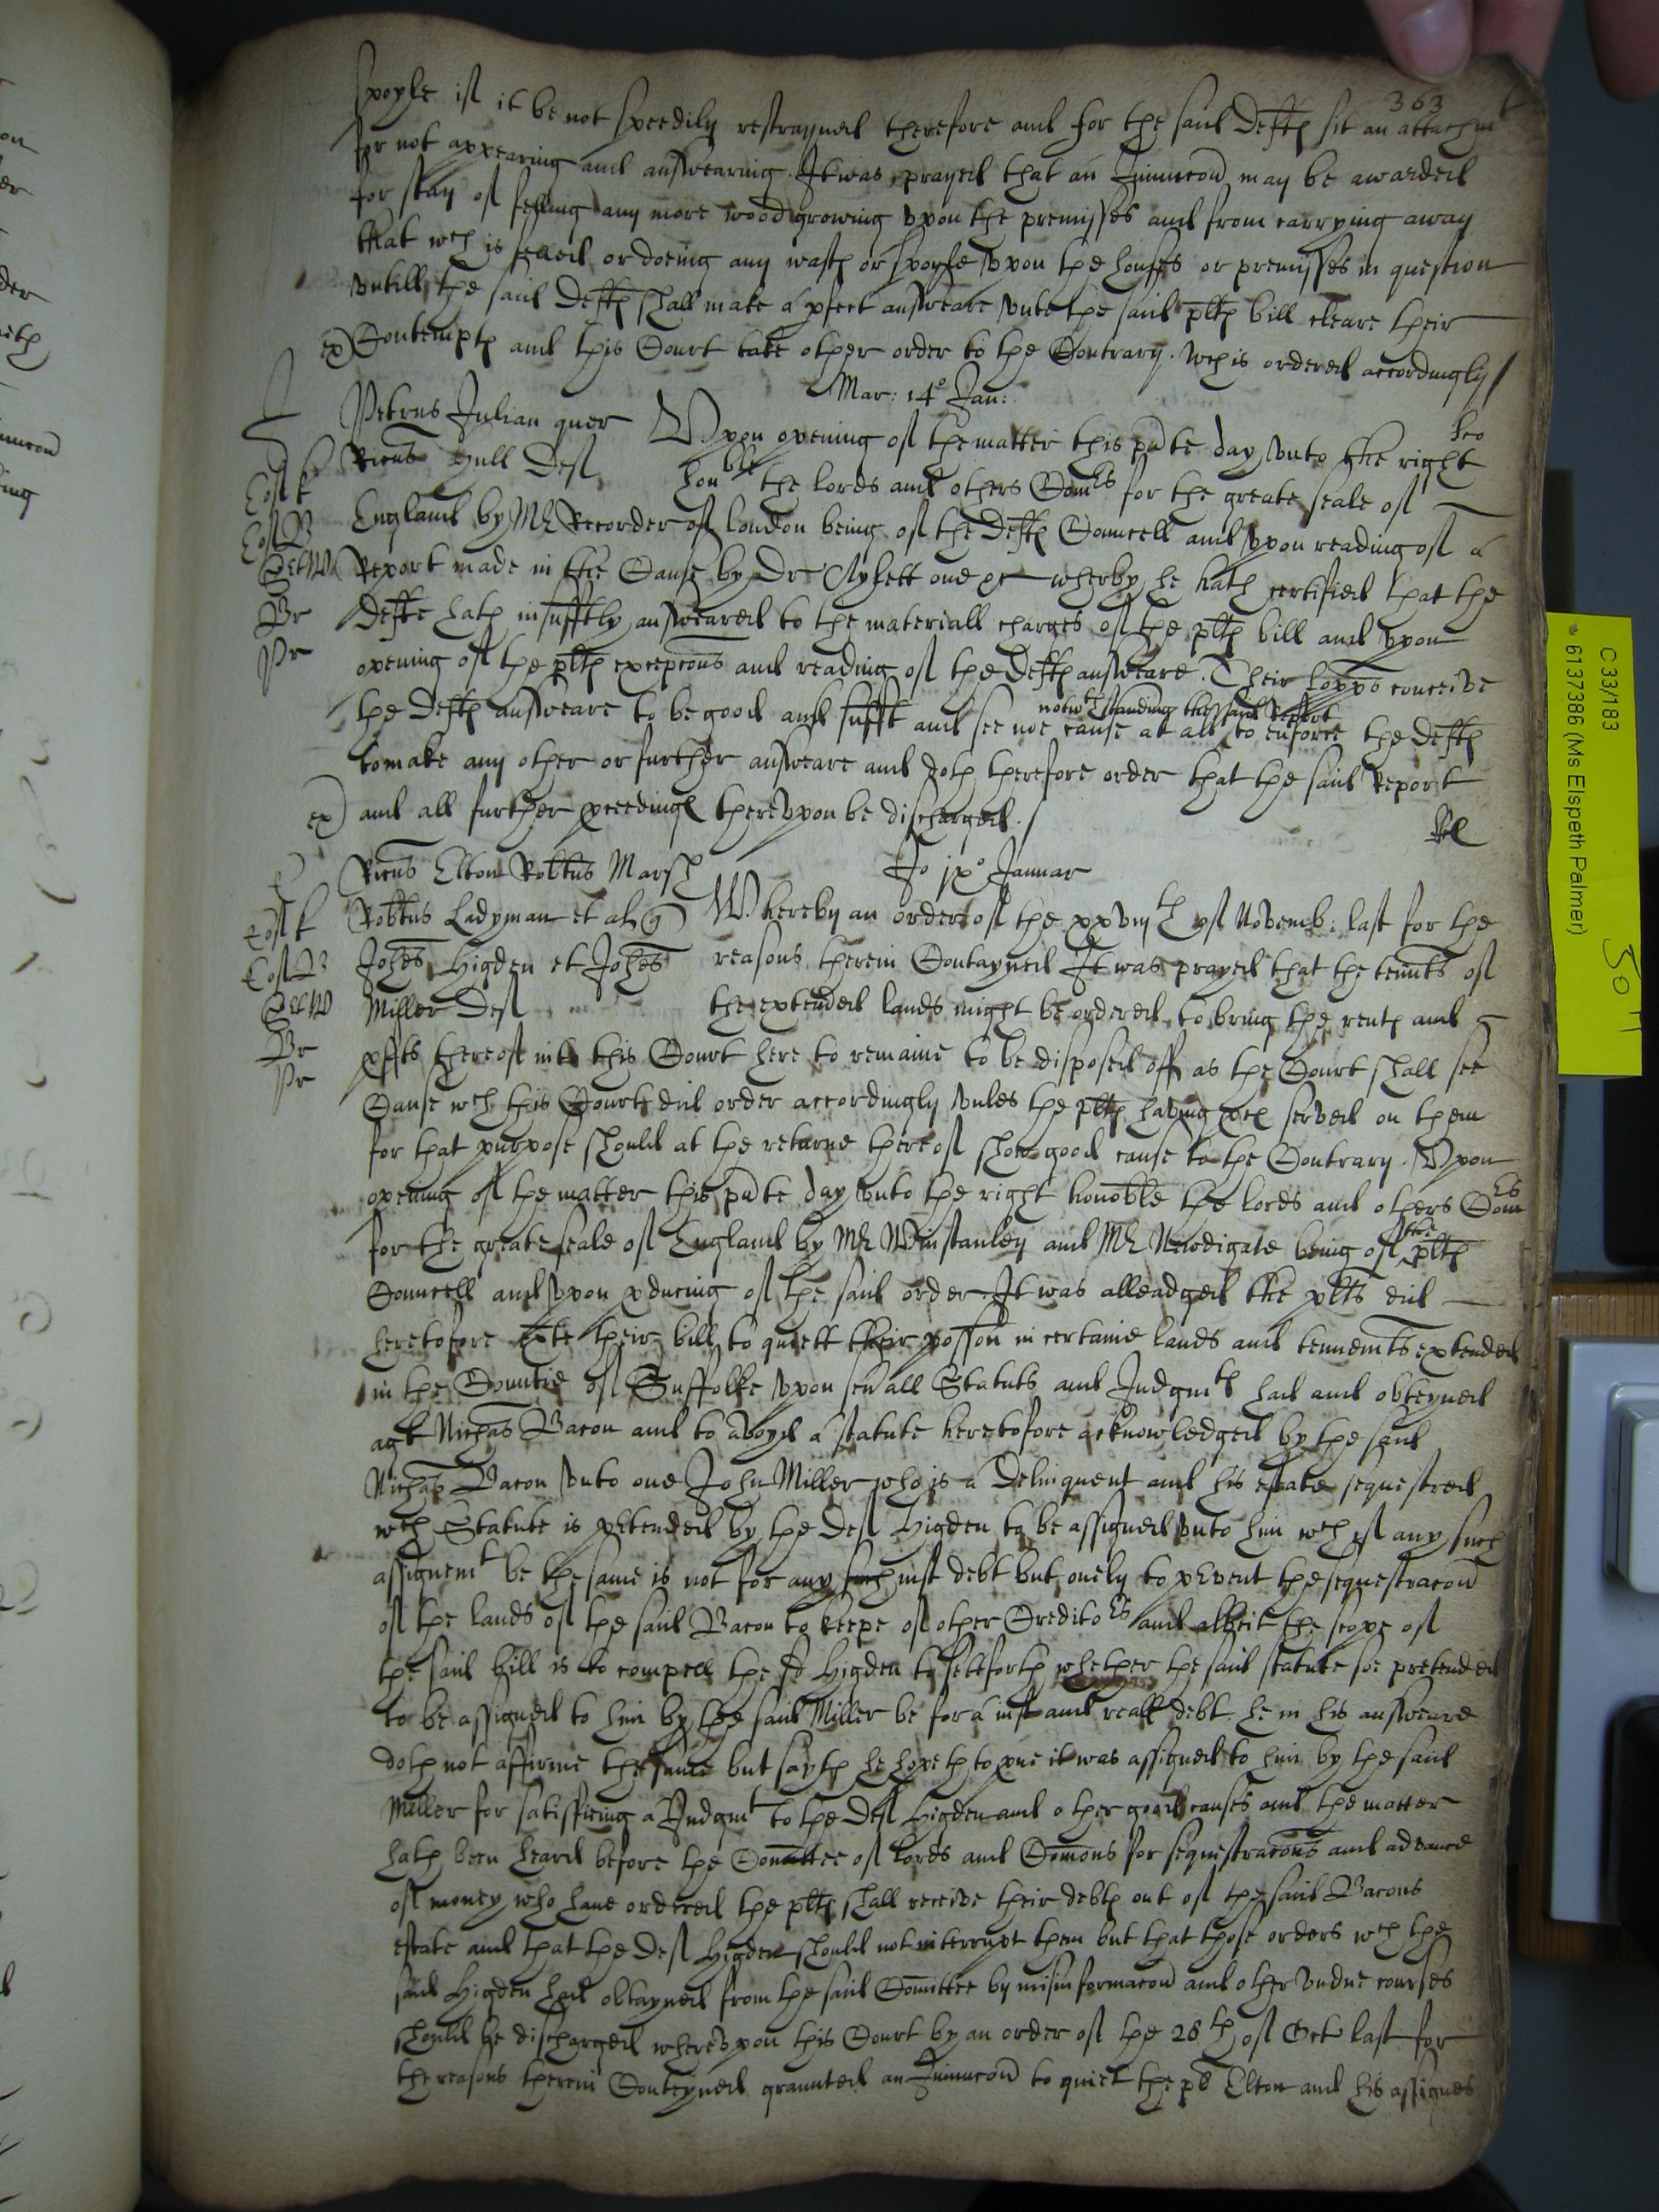 363
spoyle if it be not speedily restrayned therefore and for the said Defts sit an attachmt
for not appearing and answearing. It was prayed that an Iniuncon may be awarded
for stay of felling any more wood growing vpon the premisses and from carrying away
that wch is felled or doeing any wast or spoyle vpon the houses or premisses in question
vntill the said Defts shall make a pfect answeare vnto the said plts bill cleare their
ex) Contempts and this Court take other order to the Contrary. wch is ordered accordingly
Mar: 14o Jan:
Petrus Julian quer Vpon opening of the matter this pnte day vnto the right
Ricus Hull Deft honble the lords and others Comrs for the greate seale of
England by Mr Recorder of London being of the Defts Councell and vpon reading of a
Report made in the Cause by Dr Aylett one &c whereby he hath certified that the
Defte hath insufftly answeared to the materiall charges of the plts bill and vpon
opening of the plts excepcons and reading of the Defts answeare. Their Lopps conceive
notwthstanding the said Report
the Defts answeare to be good and sufft and see noe cause at all to enforce the Deft
to make any other or further answeare and doth therefore order that the said Report
ex) and all further pceedings therevpon be discharged.
Ricus Elton Robtus Marsh Jo ix o Januar
Robtus Ladyman et al q Whereby an order of the xxviijth of Novemb: last for the
Johes Higden et Johes reasons therein Contayned It was prayed that the tennts of
Miller Deft the extended lands might be ordered to bring the rents and
pffts thereof into this Court here to remaine to be disposed off as the Court shall see
Cause wch this Court did order accordingly vnles the plts having pces served on them
for that purpose should at the returne thereof shew good cause to the Contrary. Vpon
opening of the matter this pnte day vnto the right honoble the lords and others Comrs
for the greate seale of England by Mr Winstanley and Mr Newdigate being of the plts
Councell and vpon pducing of the said order. It was alleadged the plts did
heretofore exhte their bill to quiett their possion in certaine lands and tenemts extended
in the Countie of Suffolke vpon seuall Statuts and Judgmts had and obteyned
agt Nichas Bacon and to avoyd a statute heretofore acknowledged by the said
Nichas Bacon vnto one John Miller who is a Delinquent and his estate sequestred
wch Statute is ptended by the Deft Higden to be assigned vnto him wch if any such
assignemt be the same is not for any iust debt but onely to pvent the sequestracon
of the lands of the said Bacon to keepe of other Creditors and albeit the scope of
the said bill is to compell the sd Higden to sett forth whether the said statute soe pretended
to be assigned to him by the said Miller be for a iust and reall debt. he in his answeare
doth not affirme the same but sayth he hopeth to pue it was assigned to him by the said
Miller for satisfieing a Judgmt to the Deft Higden and other good causes and the matter
hath been heard before the Comittee of Lords and Comons for sequestracons and advance
of money who haue ordered the plts shall receive their debts out of the said Bacons
estate and that the Deft Higden should not interrupt them but that those orders wch the
said Higden had obtayned from the said Comittee by misinformacon and other vndue courses
should be discharged wherevpon this Court by an order of the 28th of Octr last for
the reasons therein Conteyned graunted an Iniuncon to quiet the pd Elton and his assignes
C 33/183
6137386 (Ms Elspeth Palmer)